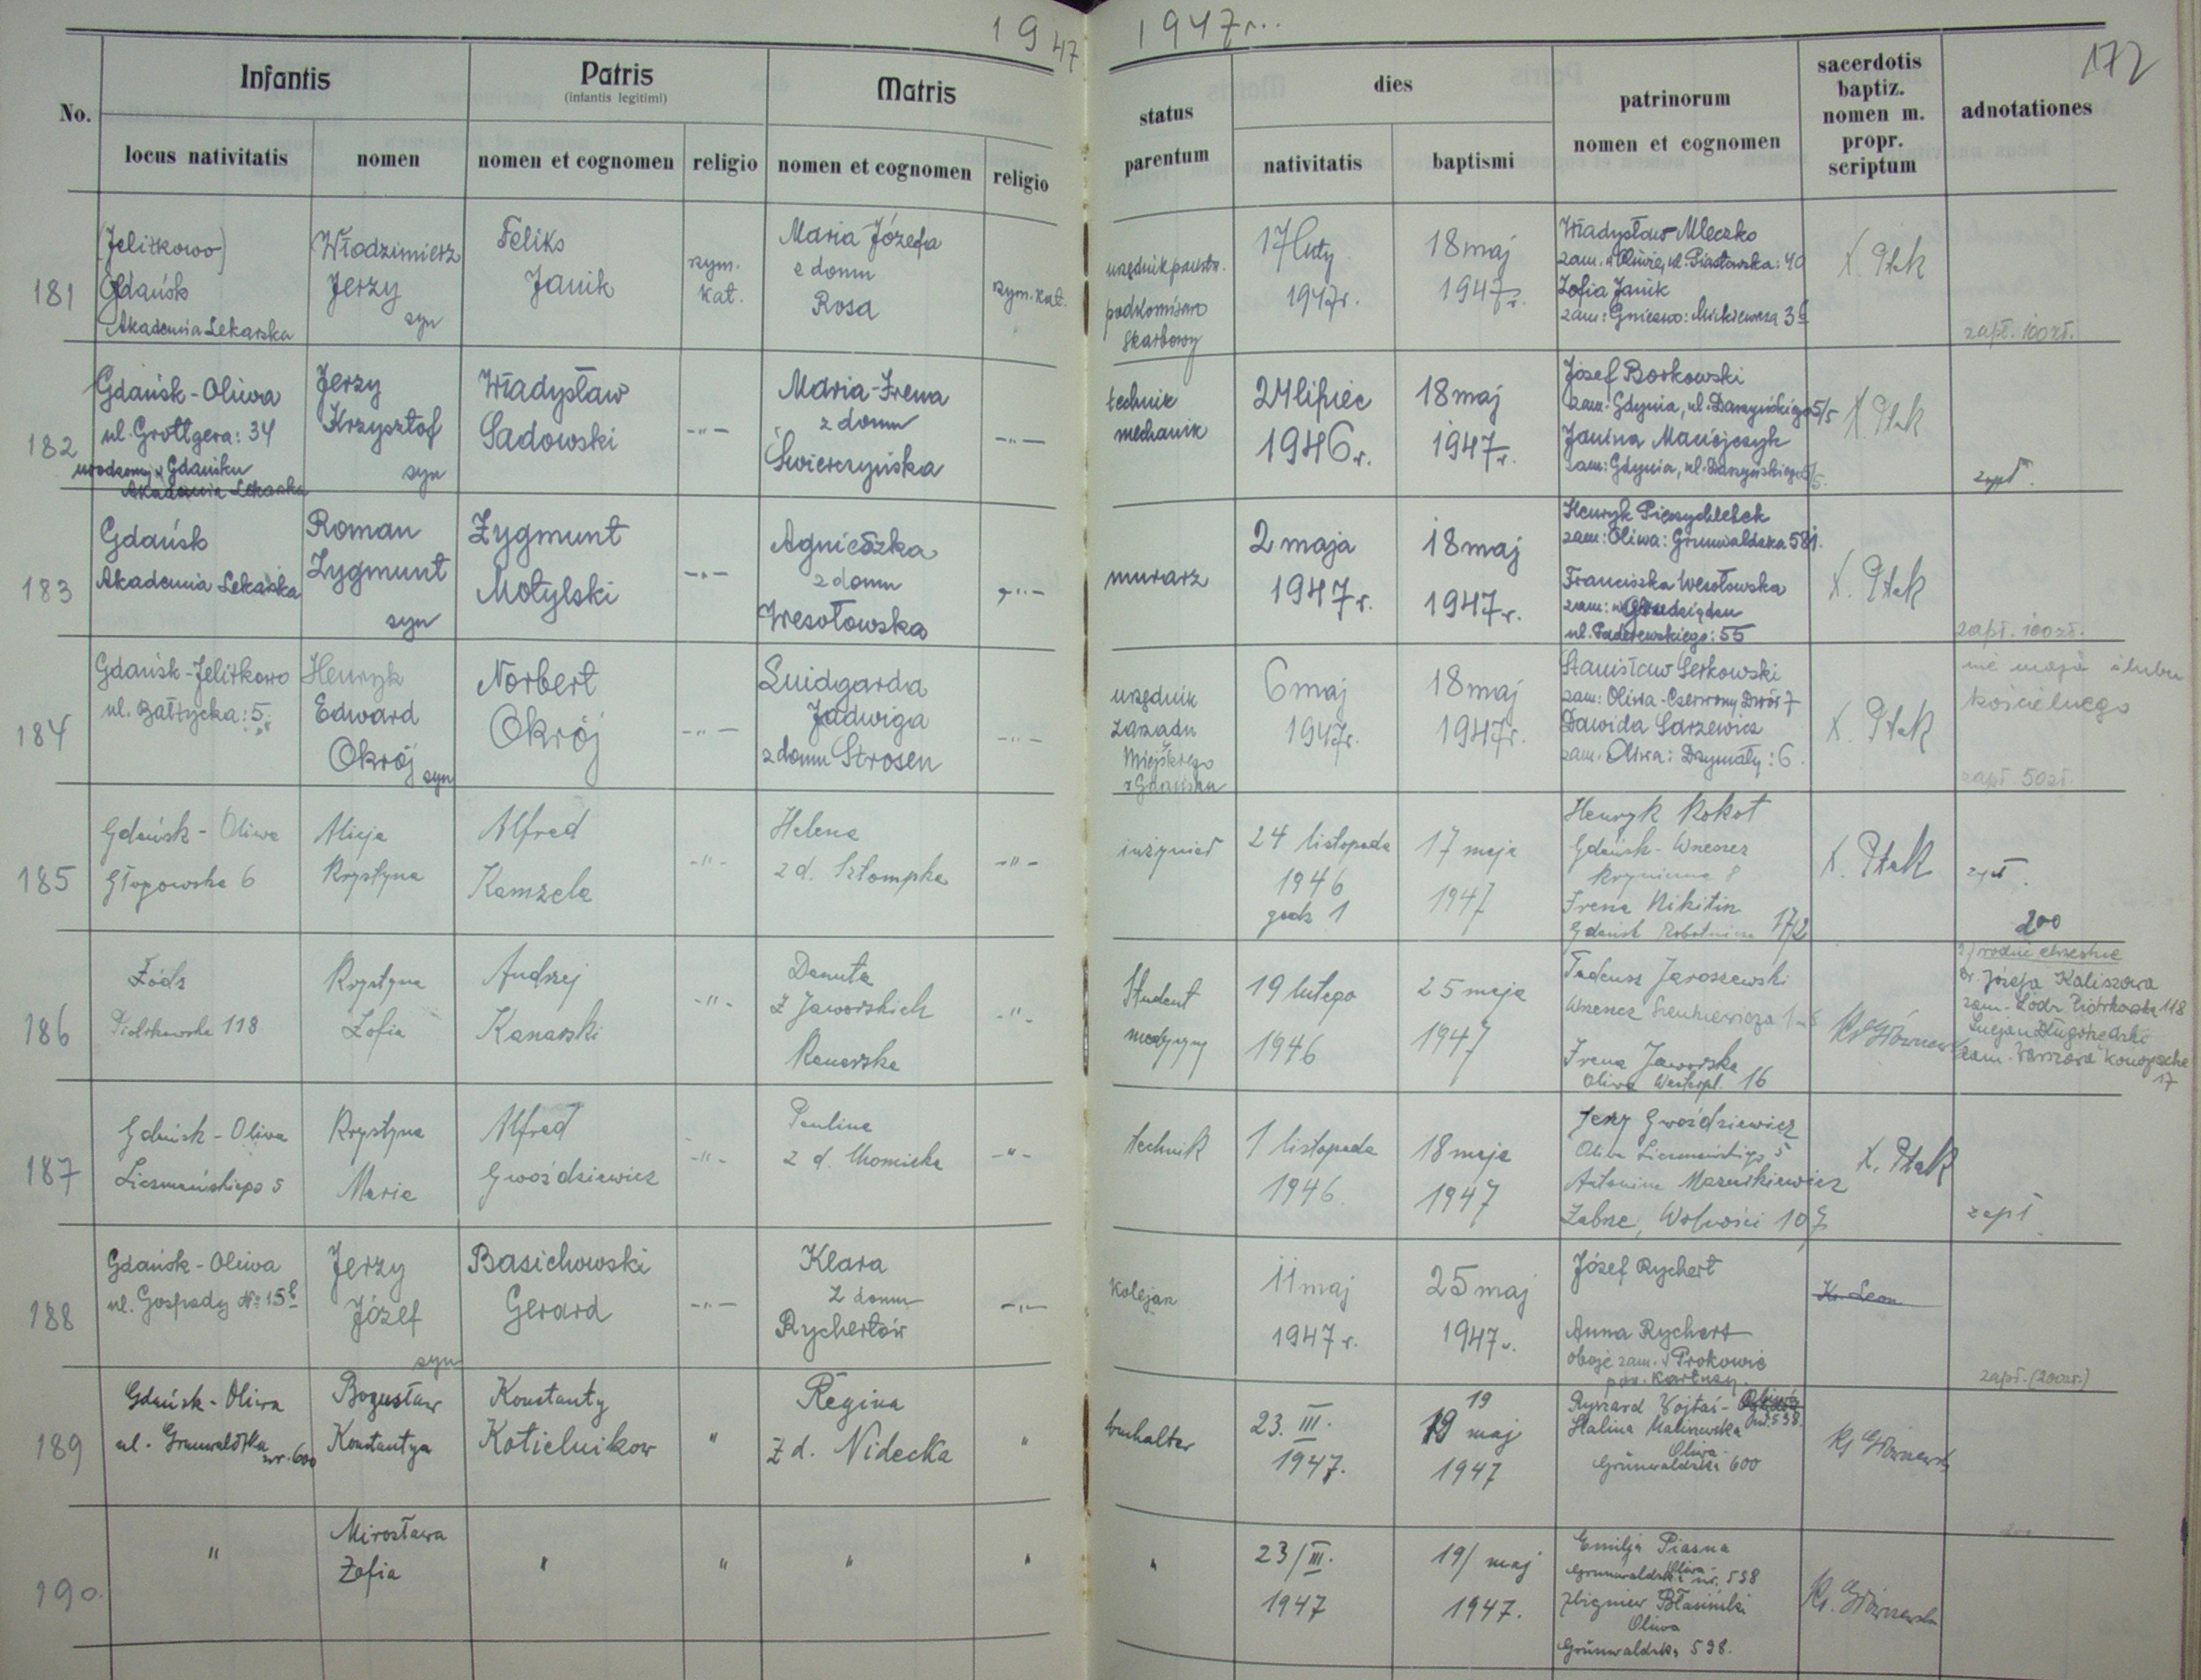 1947
1947r..
172
No.
Infantis
locus nativitatis
nomen
Patris
(infantis legitimi)
nomen et cognomen
religio
Matris
nomen et cognomen
religio
status
parentum
dies
nativitatis
baptismi
patrinorum
nomen et cognomen
sacerdotis
baptiz.
nomen m.
propr.
scriptum
adnotationes
181
(Jelitkowo)
Gdańsk
Akademia Lekarska
Włodzimierz
Jerzy
syn
Feliks
Janik
rzym.
kat.
Maria Józefa
z domu
Rosa
rzym. kat.
urzędnik państw.
podkomisarz
Skarbowy
17 luty
1947r.
18 maj
1947r.
Władysław Mleczko
zam. w Oliwie, ul. Piastowska: 40
Zofia Janik
zam: Gniezno: Mickiewicza 3
X. Ptak
zapł. 100zł.
182
Gdańsk-Oliwa
ul. Grottgera: 34
urodzony w Gdańsku
Akademia Lekarska
Jerzy
Krzysztof
syn
Władysław
Sadowski
-"-
Maria-Irena
z domu
Świerczyńska
-"-
technik
mechanik
24 lipiec
1946r.
18 maj
1947r.
Józef Borkowski
zam. Gdynia, ul. Daszyńskiego 5/5
Janina Maciejczyk
zam: Gdynia, ul. Daszyńskiego 5/5.
X. Ptak
zapł.
183
Gdańsk
Akademia Lekarska
Roman
Zygmunt
syn
Zygmunt
Motylski
-"-
Agnieszka
z domu
Wesołowska
-"-
murarz
2 maja
1947r.
18 maj
1947r.
Henryk
zam: Oliwa: Grunwaldzka 581.
Franciszka Wesołowska
zam: w Grudziądzu
ul. Paderewskiego: 55
X. Ptak
zapł. 100zł.
184
Gdańsk-Jelitkowo
ul. Bałtycka: 5.
Henryk
Edward
Okrój
syn
Norbert
Okrój
-"-
Luidgarda
Jadwiga
z domu Strosen
-"-
urzędnik
Zarządu
Miejskiego
w Gdańsku
6 maj
1947r.
18 maj
1947r.
Stanisław Serkowski
zam: Oliwa-Czerwony Dwór 7
Dawida Sarzewicz
zam. Oliwa: Drzymały: 6.
X. Ptak
nie mają ślubu
kościelnego
zapł 50zł.
185
Gdańsk-Oliwa
6
Alicja
Krystyna
Alfred
Kamzela
-"-
Helena
z d. Sztompka
-"-
inżynier
24 listopada
1946
godz 1
17 maja
1947
Henryk Kokot
Gdańsk-Wrzeszcz
8
Irena Nikitin
Gdańsk 17/2
X. Ptak
zapł.
200
186
Łódź
Piotrkowska 118
Krystyna
Zofia
Andrzej
Kanarski
-"-
Danuta
z Jaworskich
Kanarska
-"-
Student
medycyny
19 lutego
1946
25 maja
1947
Tadeusz Jaroszewski
Wrzeszcz Sienkiewicza
Irena Jaworska
Oliwa Westerpl. 16
rodzice chrzestne
Józefa Kaliszowa
zam. Łódź Piotrkowska 118
Lucjan
zam. Warszawa
17
187
Gdańsk-Oliwa
Liczmańskiego 5
Krystyna
Maria
Alfred
Gwoździewicz
-"-
Paulina
z d. Chomicka
-"-
technik
1 listopada
1946.
18 maja
1947
Jerzy Gwoździewicz
Oliwa Liczmańskiego 5
Antonina Mazurkiewicz
Zabrze, Wolności
X. Ptak
zapł.
188
Gdańsk-Oliwa
ul. Gospody № 15
Jerzy
Józef
syn
Basichowski
Gerard
-"-
Klara
z domu
Rychertów
-"-
Kolejarz
11 maj
1947r.
25 maj
1947r.
Józef Rychert
Anna Rychert
oboje zam. w Prokowie
pow. Kartuzy.
Ks. Leon
zapł. (200zł.)
189
Gdańsk-Oliwa
ul. Grunwaldzka
nr. 600
Bogusław
Konstanty
Konstanty
Kotielnikow
"
Regina
z d. Nidecka
"
buchalter
23. III.
1947.
19
19 maj
1947
Ryszard Wojtaś-
Halina Malinowska
Oliwa-
Grunwaldzka 600
190.
"
Mirosława
Zofia
"
"
"
"
"
23/III.
1947
19/ maj
1947.
Emilja Piasna
Oliwa-
Grunwaldzka nr. 538
Zbigniew Błasiński
Oliwa
Grunwaldzka 538.